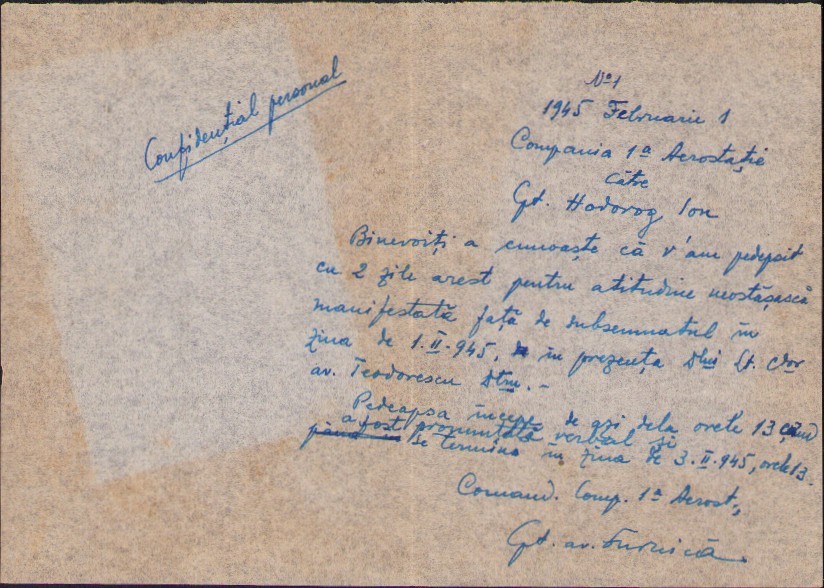 Confidențial personal
No 1
1945 Februarie 1
Compania 1ª Aerostație
către
Cpt. Hodorog Ion
Binevoiți a cunoaște că v'am pedepsit
cu 2 zile arest pentru atitudine neostășască
manifestată față de subsemnatul în
ziua de 1.II.945, în prezența Dlui Lt. Cdor
av. Teodorescu Dtru. –
Pedeapsa începe de azi dela orele 13 când
a fost pronunțată verbal și
se termina în ziua de 3.II.945, orele 13.
Comand. Comp. 1ª Aerost.,
Cpt. av.